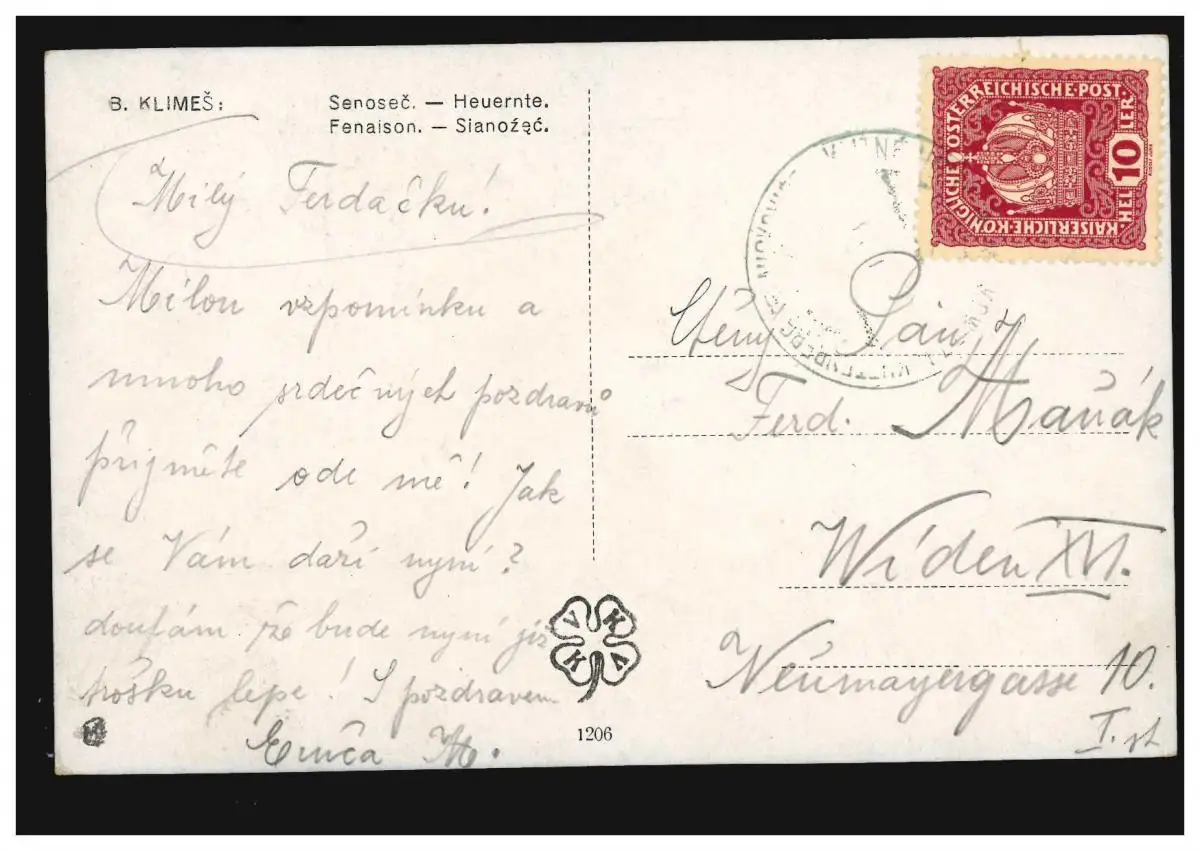 B. KLIMEŠ: Senoseč. — Heuernte.
Fenaison. — Sianożęć.
Milý Ferdačku!
Milou vzpomínku a
mnoho srdečných pozdravů
přijměte ode mě! Jak
se Vám daří nyní?
doufám že bude nyní již
trošku lépe! S pozdravem
M.
VKKA
1206
KAISERLICHE KÖNIGLICHE ÖSTERREICHISCHE POST
10
HELLER
KUTTENBERG
Ctěný Pán
Ferd. Maňák
Wíden XVI.
Neumayergasse 10.
I. st